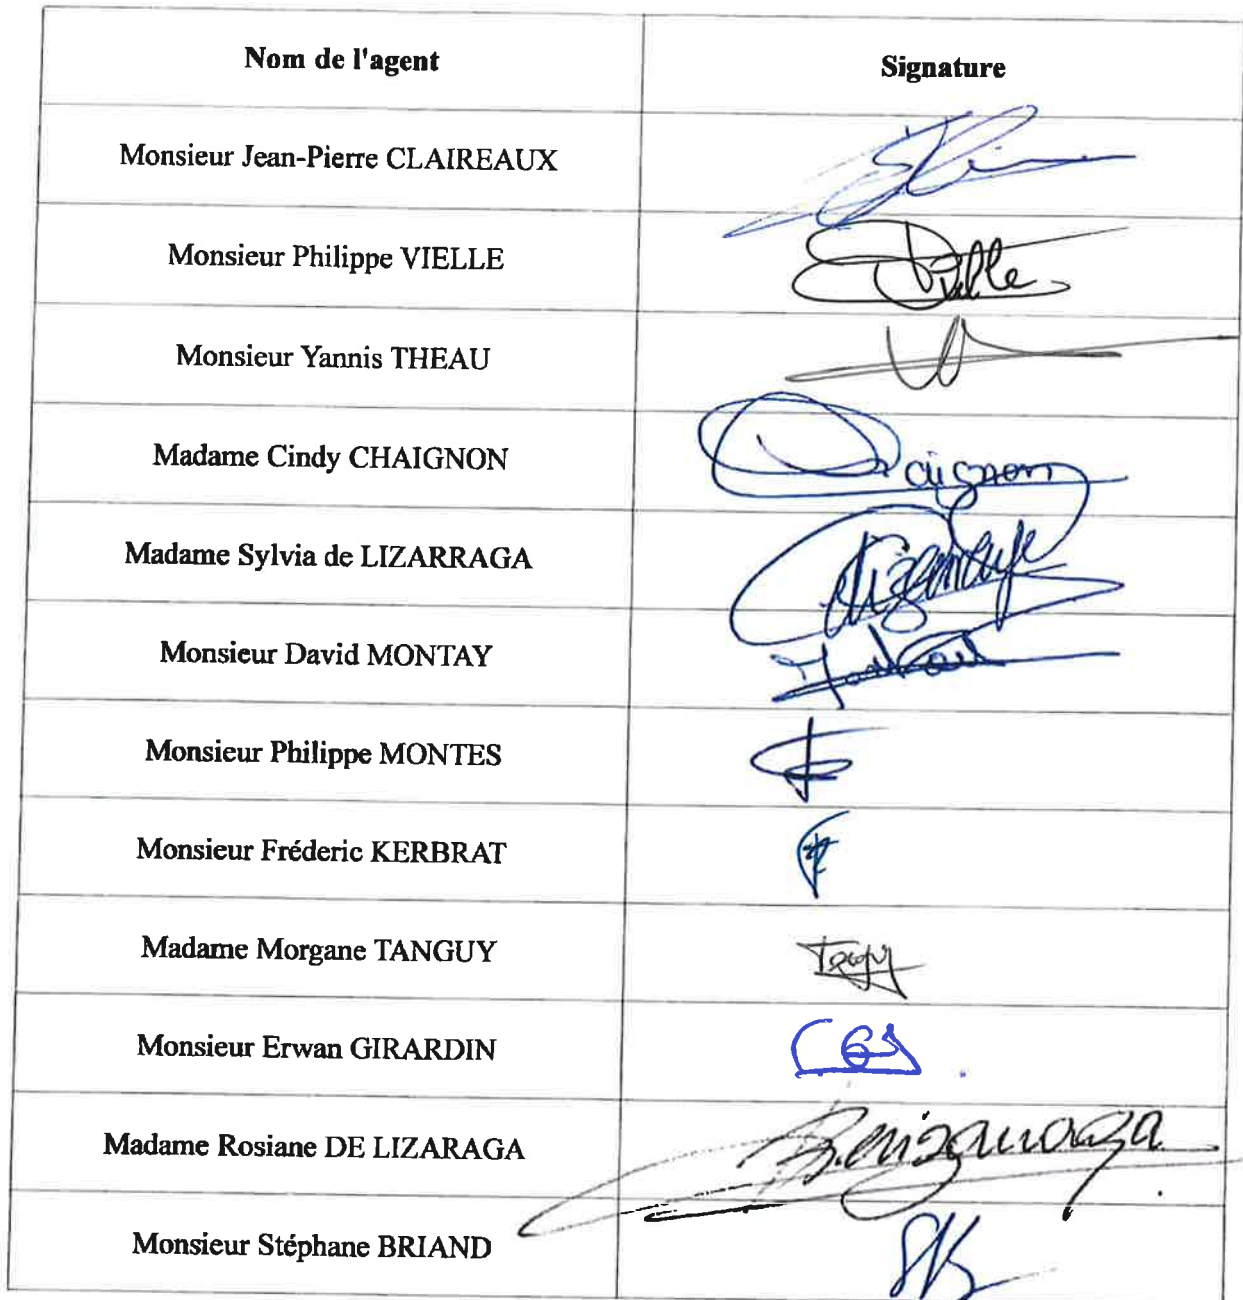 Nom de l'agent
Signature
Monsieur Jean-Pierre CLAIREAUX
Monsieur Philippe VIELLE
Monsieur Yannis THEAU
Madame Cindy CHAIGNON
Madame Sylvia de LIZARRAGA
Monsieur David MONTAY
Monsieur Philippe MONTES
Monsieur Fréderic KERBRAT
Madame Morgane TANGUY
Monsieur Erwan GIRARDIN
Madame Rosiane DE LIZARAGA
Monsieur Stéphane BRIAND